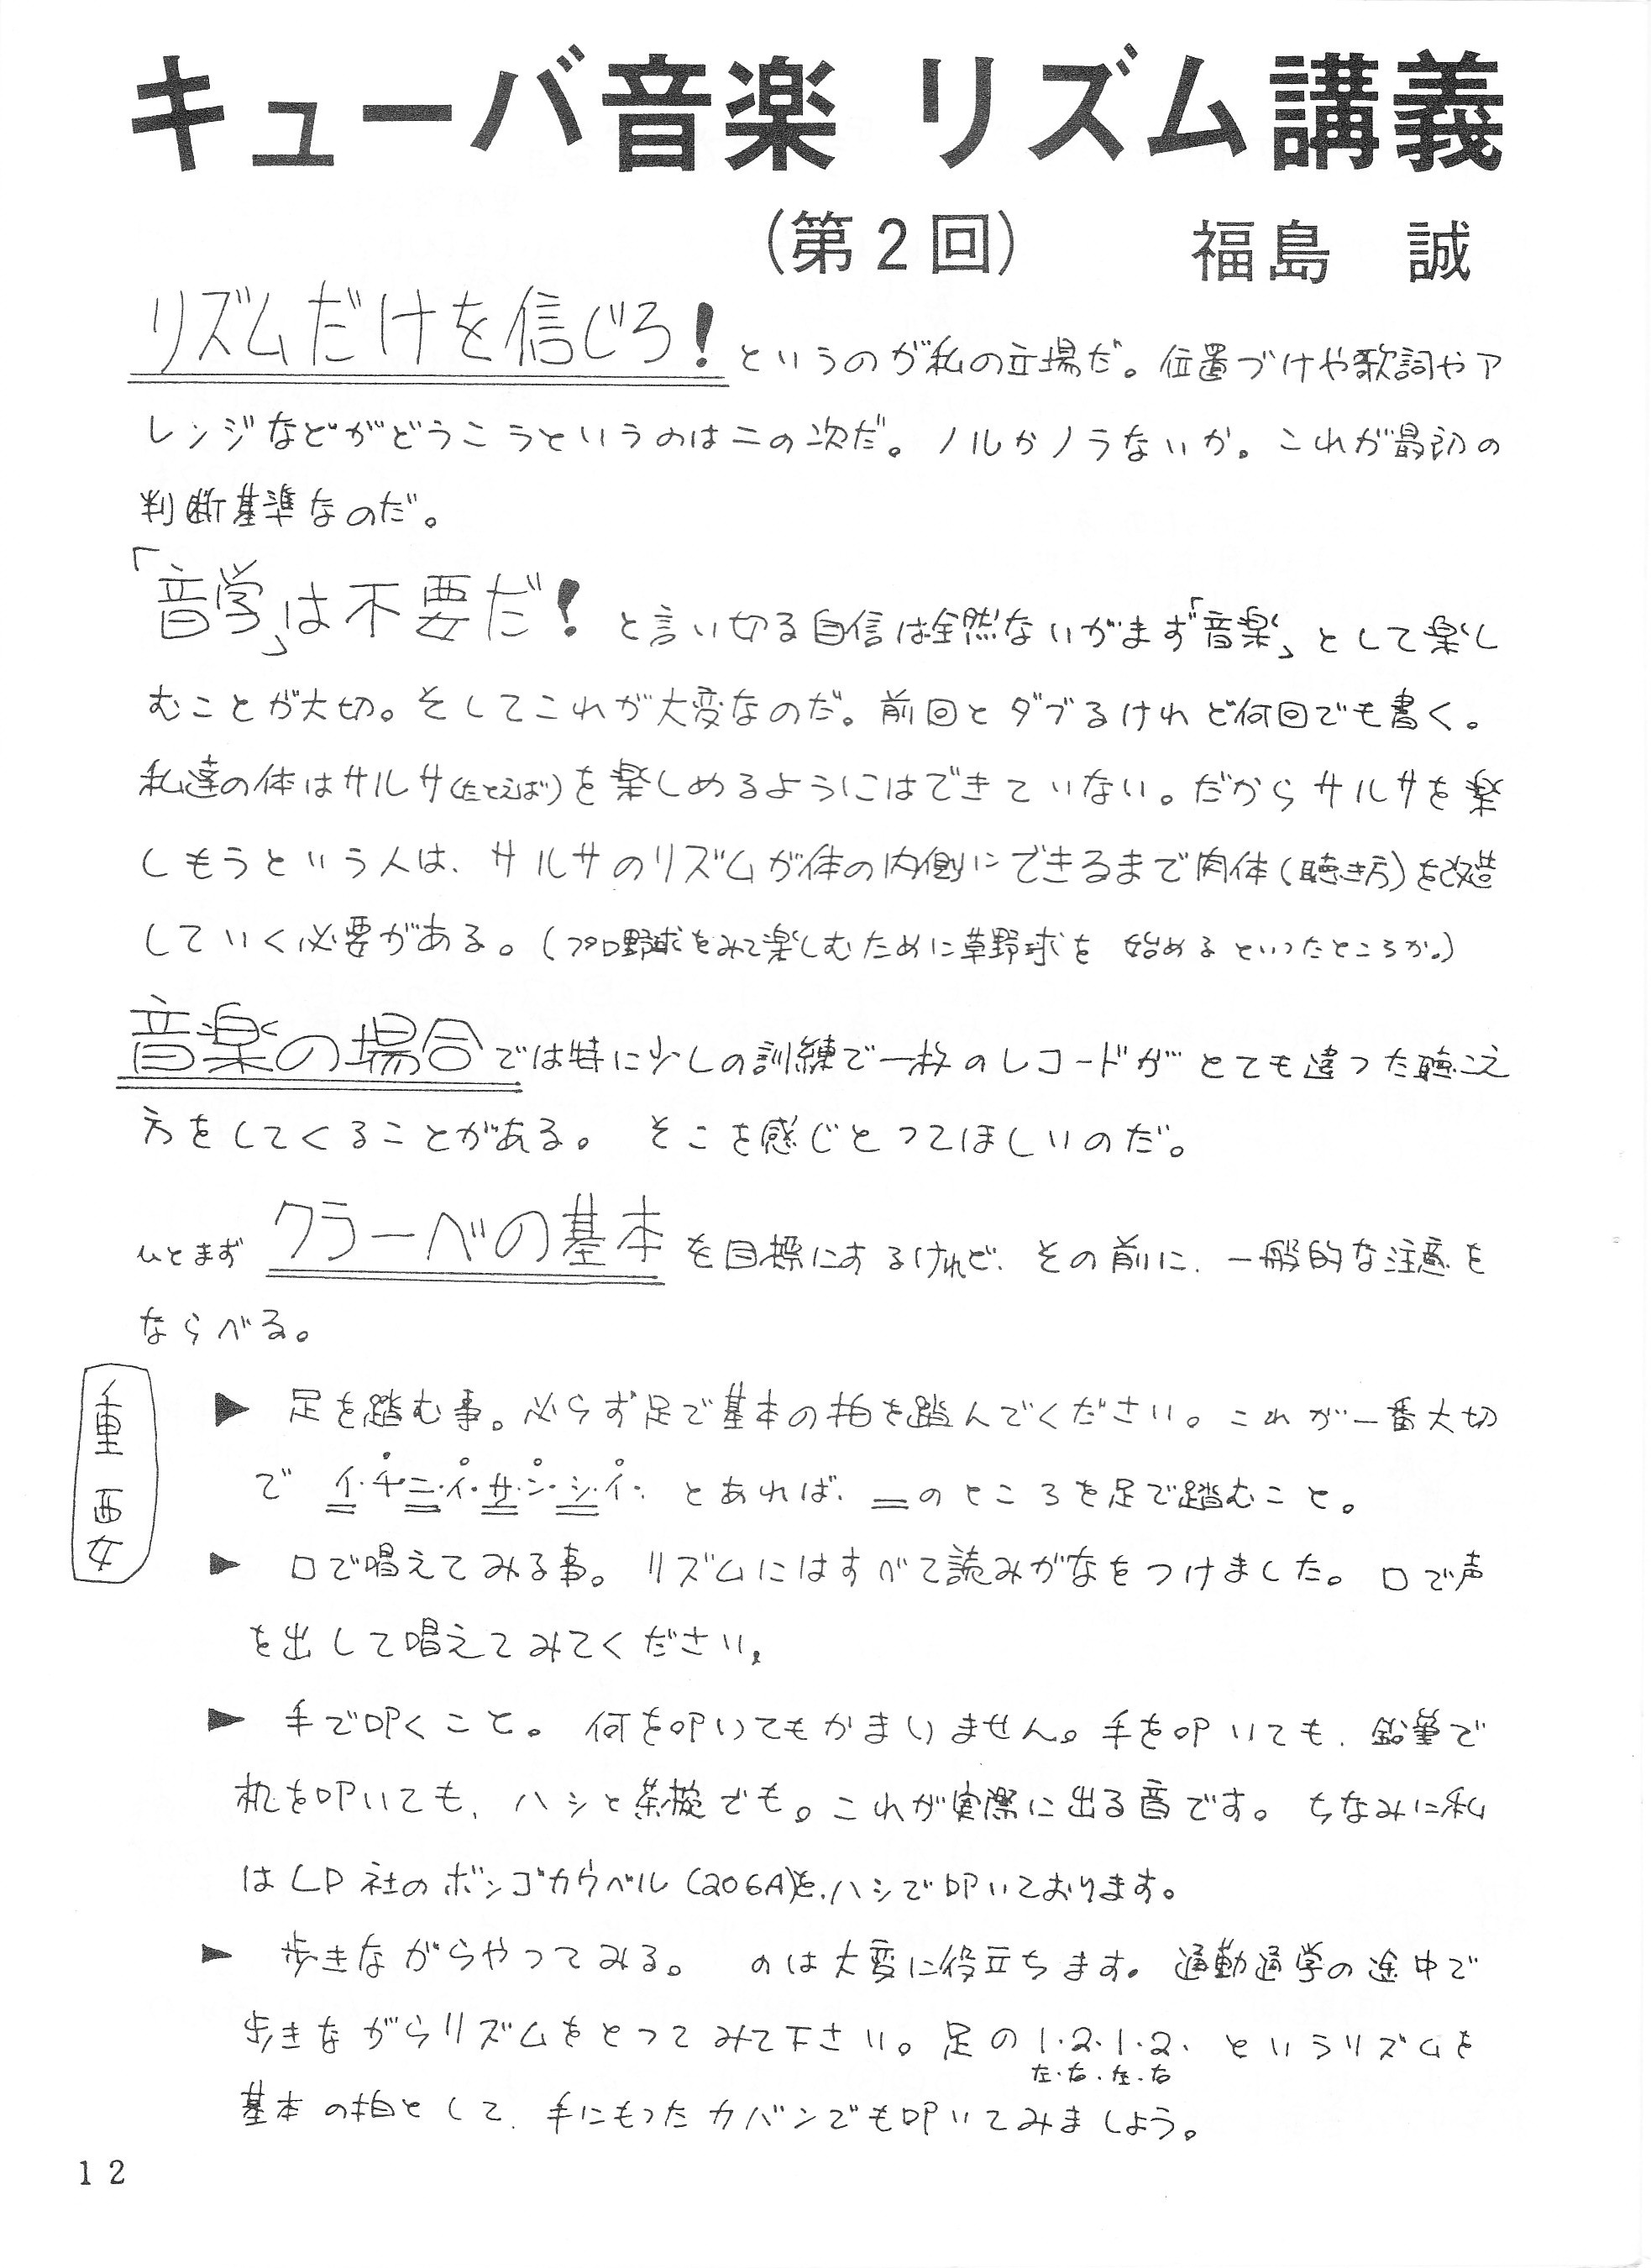 キューバ音楽 リズム講義
(第2回) 福島 誠
リズムだけを信じろ!というのが私の立場だ。位置づけや歌詞やア
レンジなどがどうこうというのは二の次だ。ノルかノラないか。これが最初の
判断基準なのだ。
「音学」は不要だ!と言い切る自信は全然ないがまず「音楽」として楽し
むことが大切。そしてこれが大変なのだ。前回とダブるけれど何回でも書く。
私達の体はサルサ(たとえば)を楽しめるようにはできていない。だからサルサを楽
しもうという人は、サルサのリズムが体の内側にできるまで肉体(聴き方)を改造
していく必要がある。(プロ野球をみて楽しむために草野球を始めるといったところか。)
音楽の場合では特に少しの訓練で一枚のレコードがとても違った聴こえ
方をしてくることがある。そこを感じとってほしいのだ。
ひとまずクラーベの基本を目標にするけれど、その前に、一般的な注意を
ならべる。
重要
▶ 足を踏む事。必らず足で基本の拍を踏んでください。これが一番大切
で イ・チ・ニ・イ・サ・ン・シ・イ・ とあれば、＿のところを足で踏むこと。
▶ 口で唱えてみる事。リズムにはすべて読みがなをつけました。口で声
を出して唱えてみてください。
▶ 手で叩くこと。何を叩いてもかまいません。手を叩いても、鉛筆で
机を叩いても、ハシと茶椀でも。これが実際に出る音です。ちなみに私
はLP社のボンゴカウベル(206A)を、ハシで叩いております。
▶ 歩きながらやってみる。のは大変に役立ちます。通勤通学の途中で
歩きながらリズムをとってみて下さい。足の1・2・1・2、というリズムを
左・右・左・右
基本の拍として、手にもったカバンでも叩いてみましょう。
12